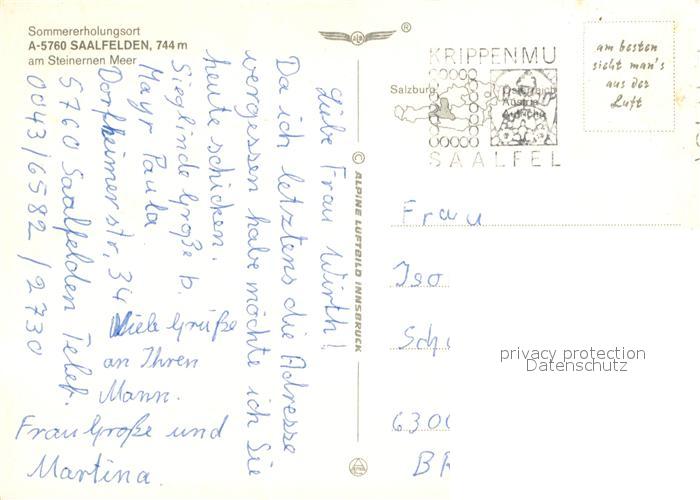 Sommererholungsort
A-5760 SAALFELDEN, 744 m
am Steinernen Meer
Liebe Frau Wirth!
Da ich letztens die Adresse
vergessen habe möchte ich Sie
heute schicken.
Sieglinde Große b.
Mayr Paula
Dorfheimerstr, 34
5760 Saalfelden Telef.
0043/6582/2730
Viele Grüße
an Ihren
Mann.
Frau Große und
Martina.
© ALPINE LUFTBILD INNSBRUCK
®
KRIPPENMU
Salzburg
Österreich
Austria
Autriche
SAALFEL
am besten
sieht man's
aus der
Luft
Frau
Iso
Sch
630
BR
privacy protection
Datenschutz